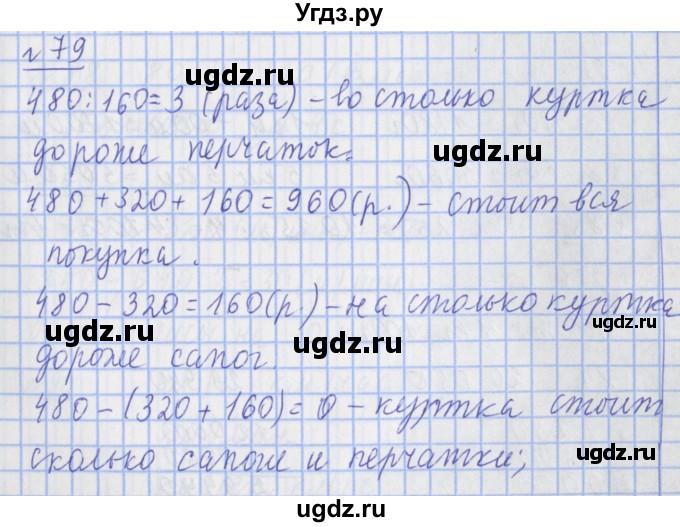 Угдз.ру
№ 79
480:160=3 (раза) - во столько куртка
дороже перчаток.
480+320+160=960(р.) - стоит вся
покупка.
480-320=160(р.) - на столько куртка
дороже сапог.
480-(320+160)=0 - куртка стоит
сколько сапоги и перчатки;
ugdz.ru
ugdz.ru
ugdz.ru
ugdz.ru
ugdz.ru
ugdz.ru
ugdz.ru
ugdz.ru
ugdz.ru
ugdz.ru
ugdz.ru